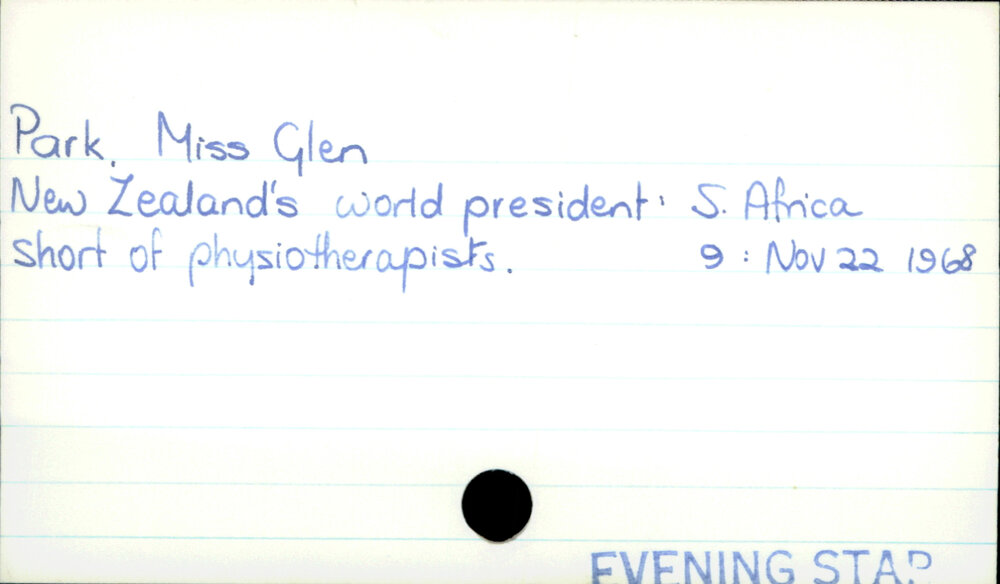 Park, Miss Glen
New Zealand's world president: S. Africa
short of physiotherapists. 9 : Nov 22 1968
EVENING STAR